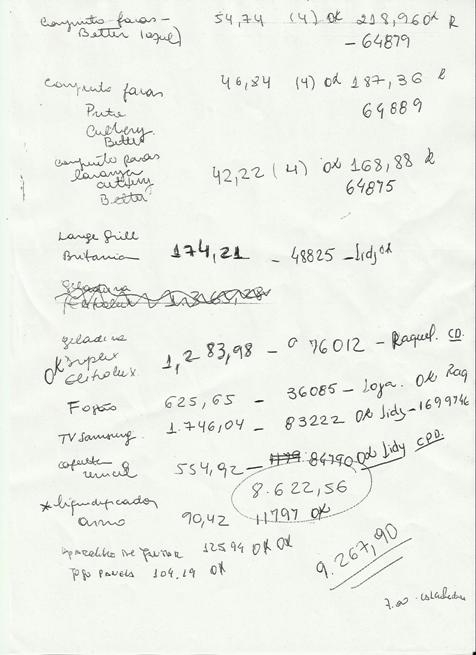 conjunto facas - 54,74 (4) OK 218,96 OK R
Better (azul) - 64879
conjunto facas 46,84 (4) OK 187,36 R
Preta 64889
Cutlery
Better
conjunto facas
laranja 42,22 (4) OK 168,88 R
cutlery 64875
Better
Large Grill
Britania 174,21 - 48825 - Lidy OK
geladeira
geladeira
OK Duplex 1,283,98 - 76012 - Raquel. CD.
Eletrolux.
Fogão 625,65 - 36085 - Loja. OK Raq
TV Samsung. 1.746,04 - 83222 OK Lidy - 1699746
554,92 - 84790 OK Lidy CPD.
8.622,56
*liquidificador
arno 90,42 11797 OK
Aparelho de Jantar 125,94 OK OK
Jogo Panela 104,19 OK
9.267,90